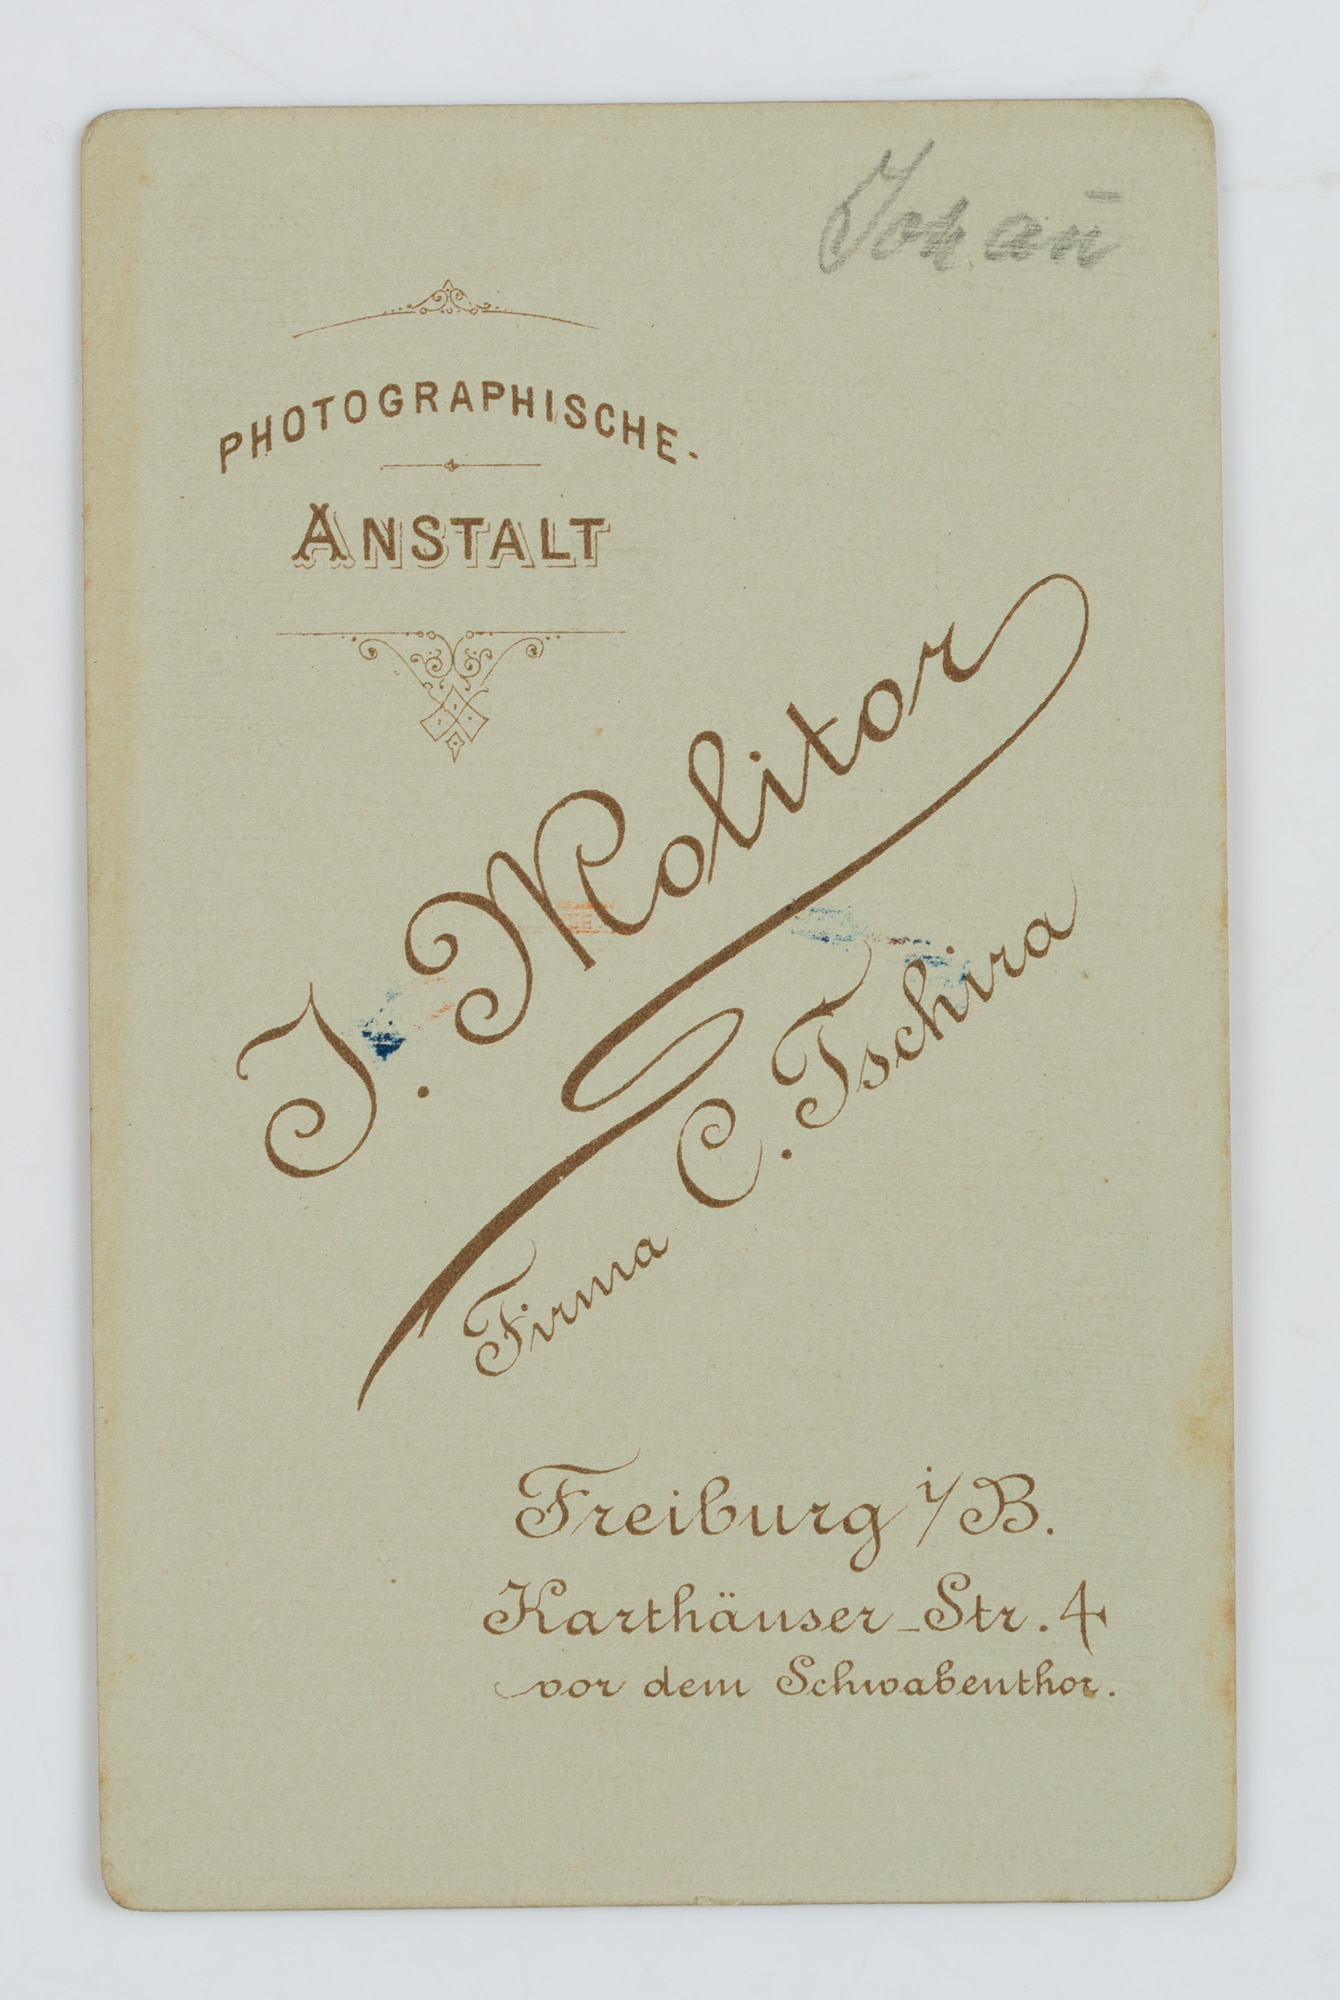 Johan̄
PHOTOGRAPHISCHE-
ANSTALT
J. Molitor
Firma C. Tschira
Freiburg i/B.
Karthäuser-Str. 4
vor dem Schwabenthor.